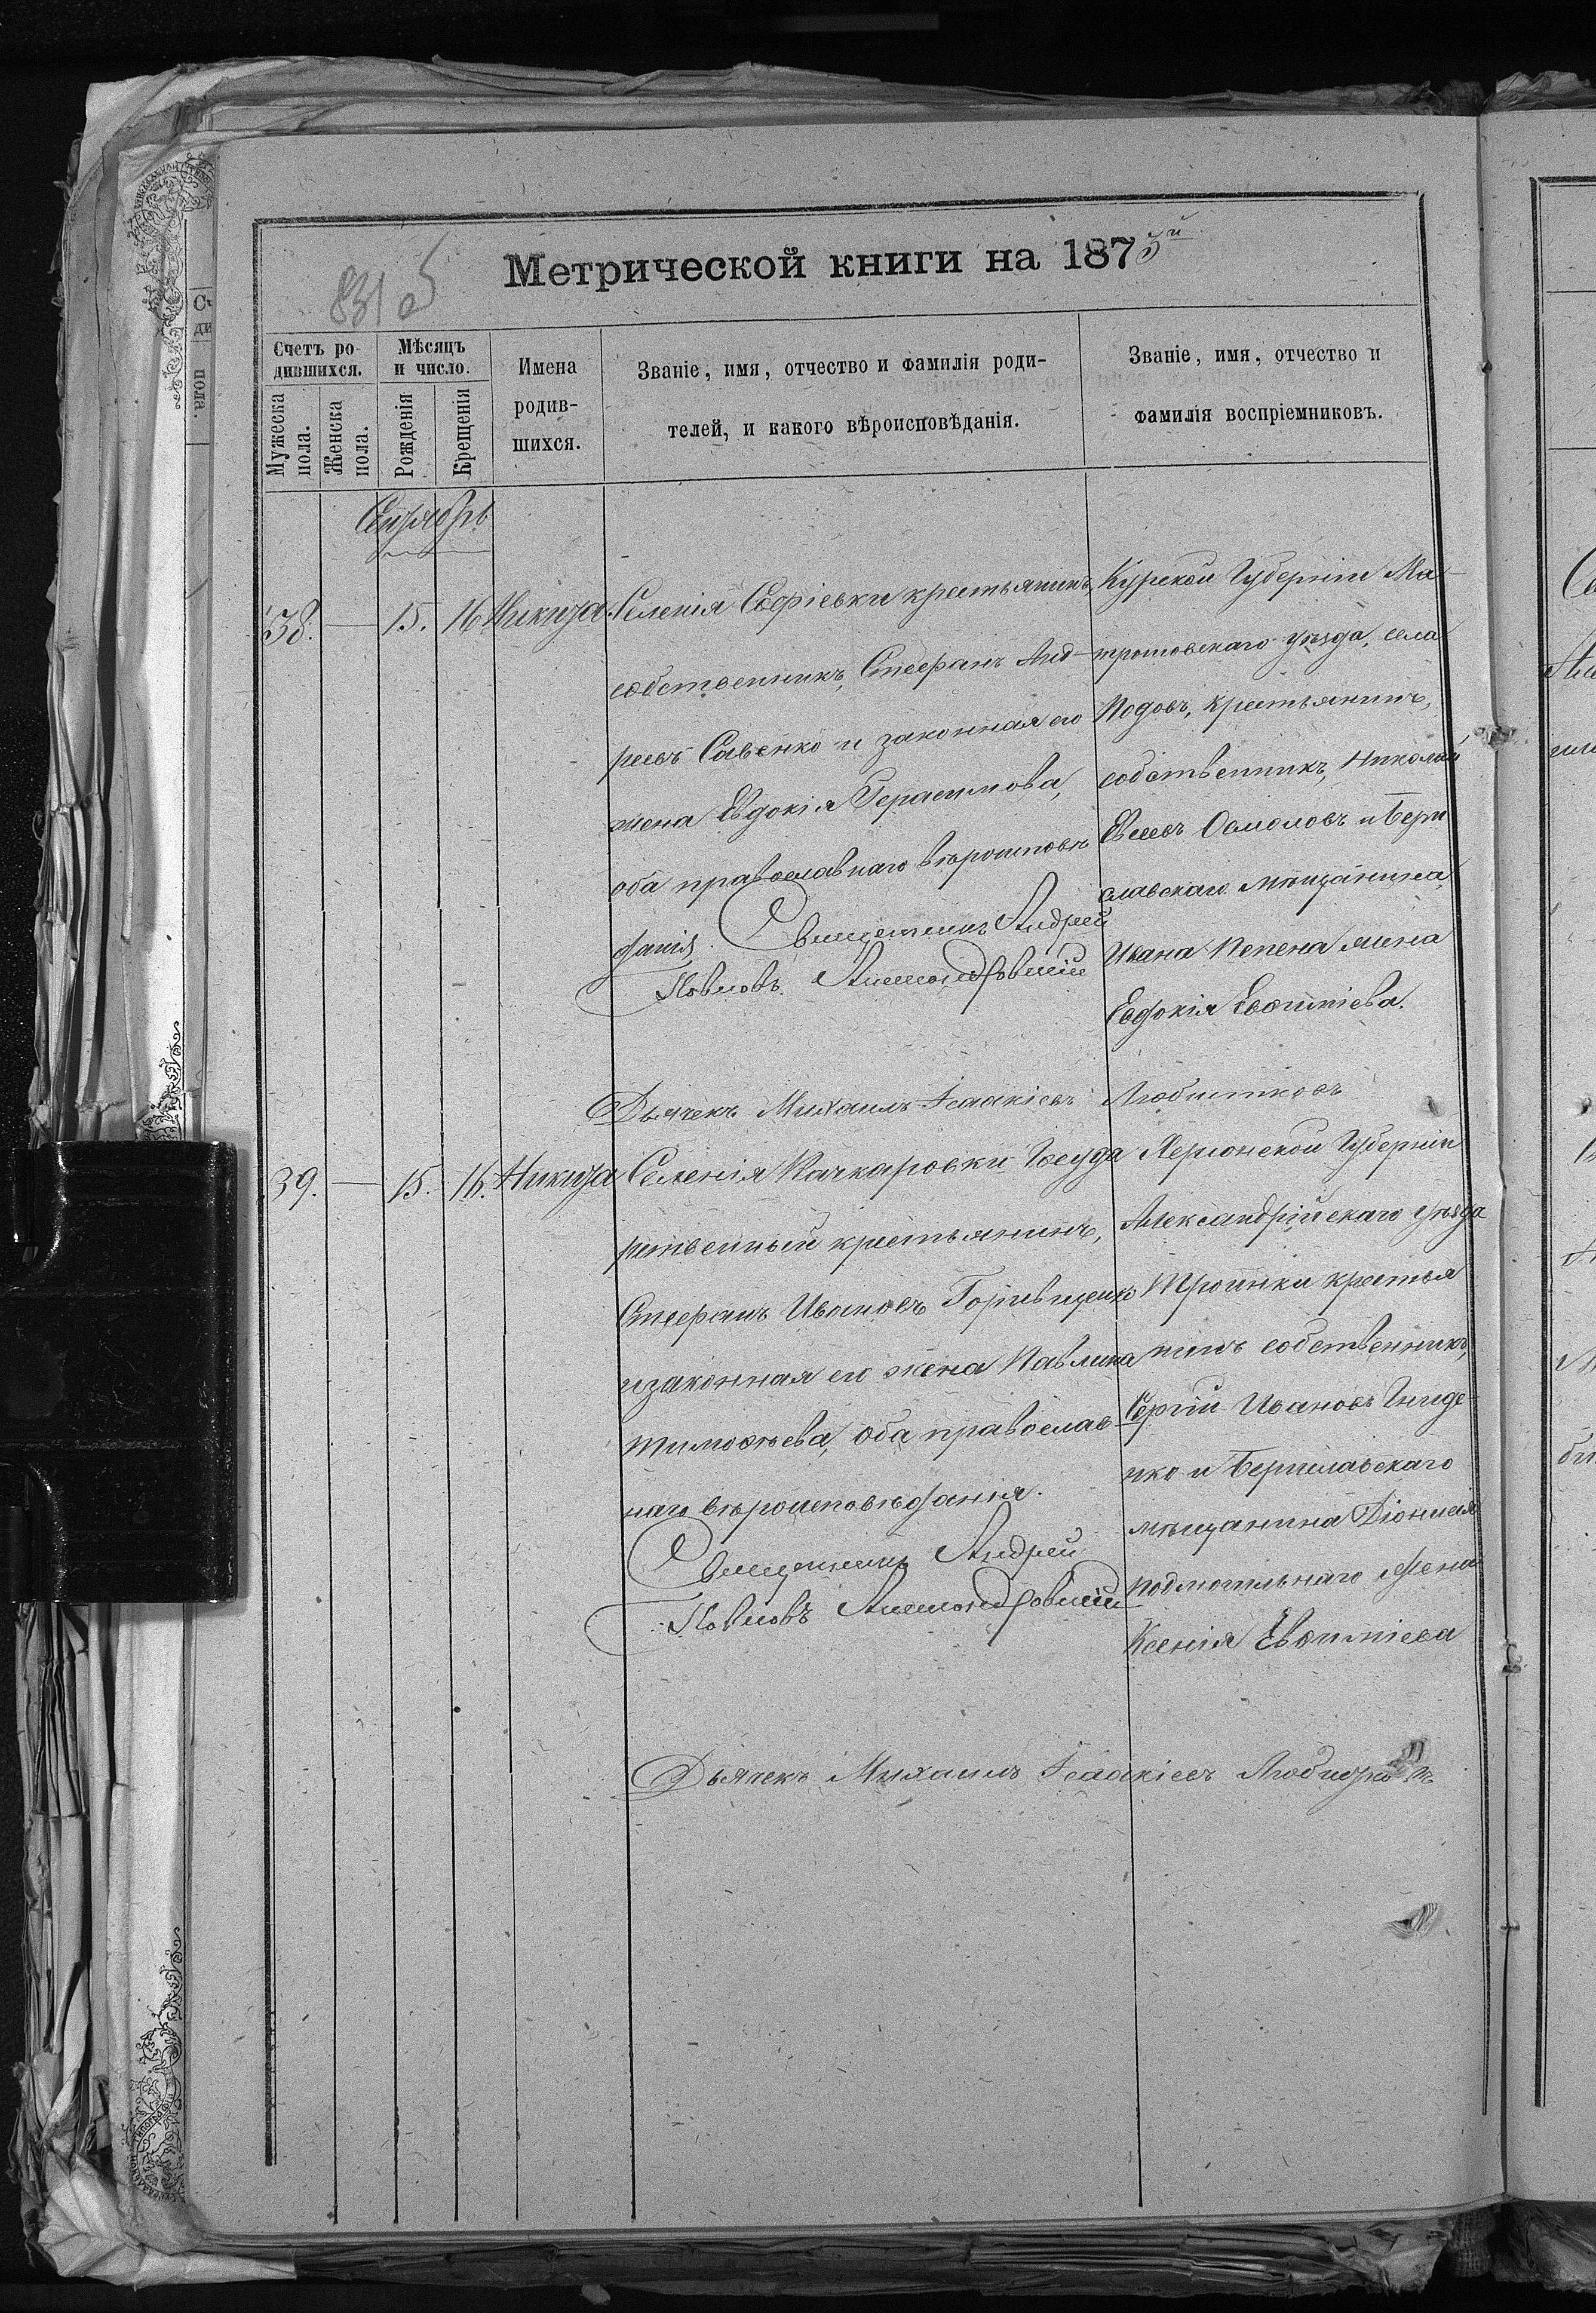 Метрической книги на 1875й
831 об
Счетъ ро-
дившихся.
Мужеска
пола.
Женска
пола.
Мѣсяцъ
и число.
Рожденія
Крещенія
Имена
родив-
шихся.
Званіе, имя, отчество и фамилія роди-
телей, и какого вѣроисповѣданія.
Званіе, имя, отчество и
фамилія воспріемниковъ.
Сентябрь
38. — 15. 16 Никита.
Селенія Софіевки крестьянинъ,
собственникъ, Стефанъ Анд-
реевъ Савенко и законная его
жена Евдокія Герасимова,
оба православнаго вѣроисповѣ
данія. Священникъ Андрей
Павловъ
Курской Губерніи
уѣзда, села
крестьянинъ,
собственникъ, Николай
Осмоловъ и Бери
славскаго мѣщанина,
Ивана жена
Евдокія Евѳиміева.
Дьячекъ Михаилъ Ісаакіевъ
39. — 15. 16. Никита
Селенія Качкаровки Госуда
рственный крестьянинъ,
Стефанъ Ивановъ
и законная его жена Павлина
Тимоѳеева, оба православ-
наго вѣроисповѣданія.
Священникъ Андрей
Павловъ
Херсонской Губерніи
Александрійскаго уѣзда
крестья
нинъ собственникъ,
Сергій Ивановъ Гниде-
нко и Бериславскаго
мѣщанина Діонисія
Подмогильнаго жена
Ксенія Евѳиміева
Дьячекъ Михаилъ Ісаакіевъ